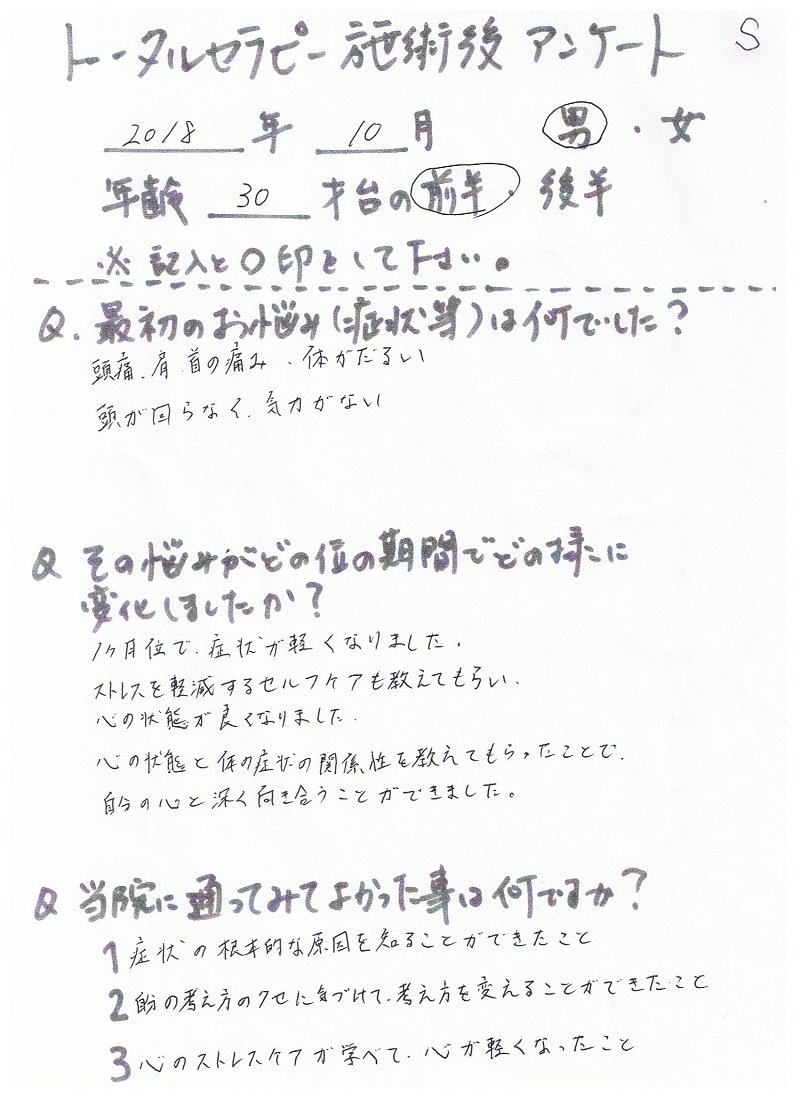 トータルセラピー施術後 アンケート S
2018 年 10 月 男・女
年齢 30 才台の前半・後半
※記入と〇印をして下さい。
Q. 最初のお悩み(症状等)は何でした?
頭痛、肩、首の痛み、体がだるい
頭が回らなく、気力がない
Q その悩みがどの位の期間でどの様に
変化しましたか?
1ヶ月位で、症状が軽くなりました。
ストレスを軽減するセルフケアも教えてもらい、
心の状態が良くなりました。
心の状態と体の症状の関係性を教えてもらったことで、
自分の心と深く向き合うことができました。
Q 当院に通ってみてよかった事は何ですか?
1 症状の根本的な原因を知ることができたこと
2 自分の考え方のクセに気づけて、考え方を変えることができたこと
3 心のストレスケアが学べて、心が軽くなったこと